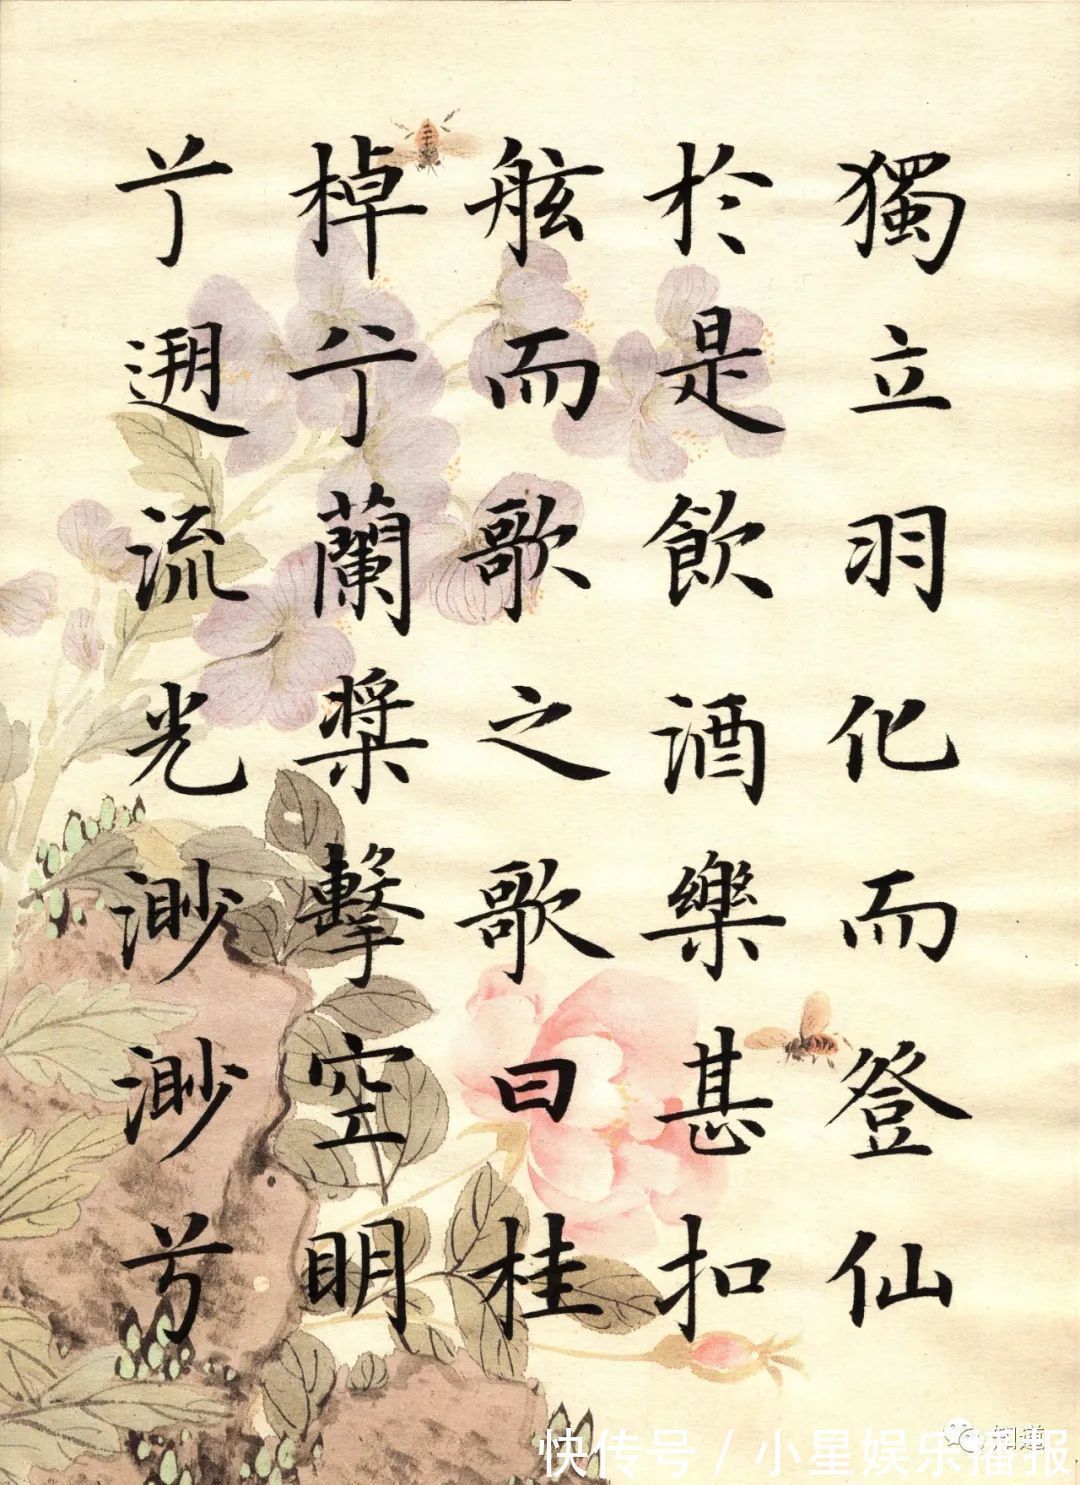 獨立羽化而登仙
於是飲酒樂甚扣
舷而歌之歌曰桂
棹兮蘭槳擊空明
兮遡流光渺渺兮
知蓮
快传号／小星娱乐播报